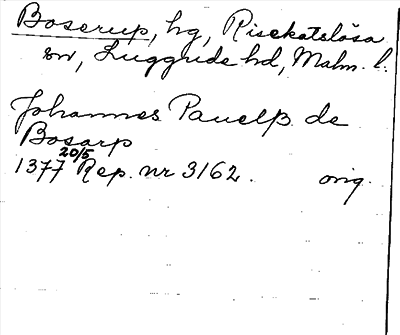 Boserup, hg, Risekatslösa
sn, Luggude hd, Malm. l.
Johannes Pauelß de
Bosarp
1377 20/5 Rep. nr 3162. orig.